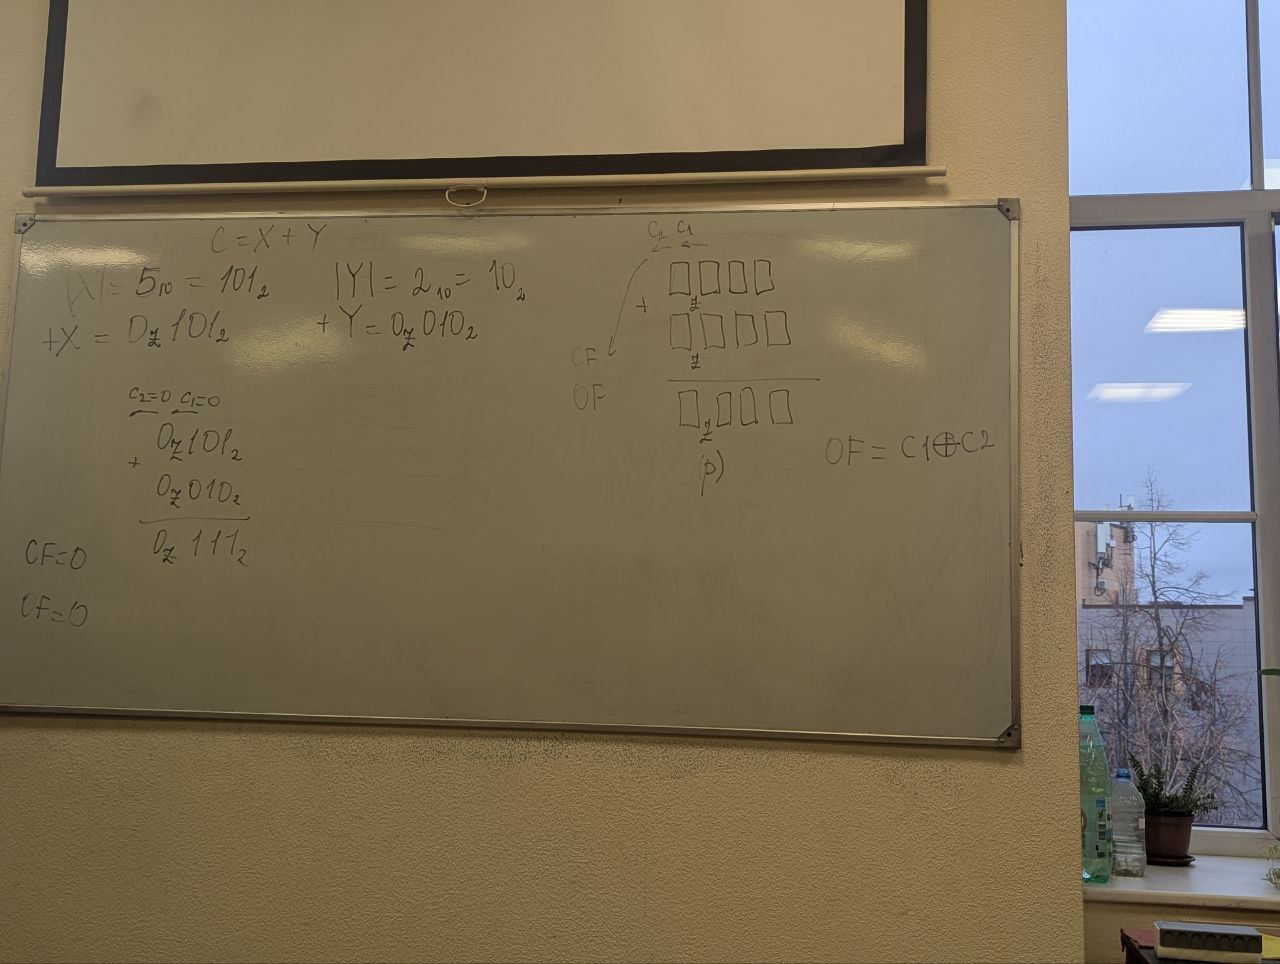 C = X + Y
|X| = 5₁₀ = 101₂ |Y| = 2₁₀ = 10₂
+X = 0z101₂ + Y = 0z010₂
c₂=0 c₁=0
0z101₂
+
0z010₂
0z111₂
CF=0
OF=0
C₂ C₁
+
z
z
CF
OF
z
(p)
OF = C1⊕C2